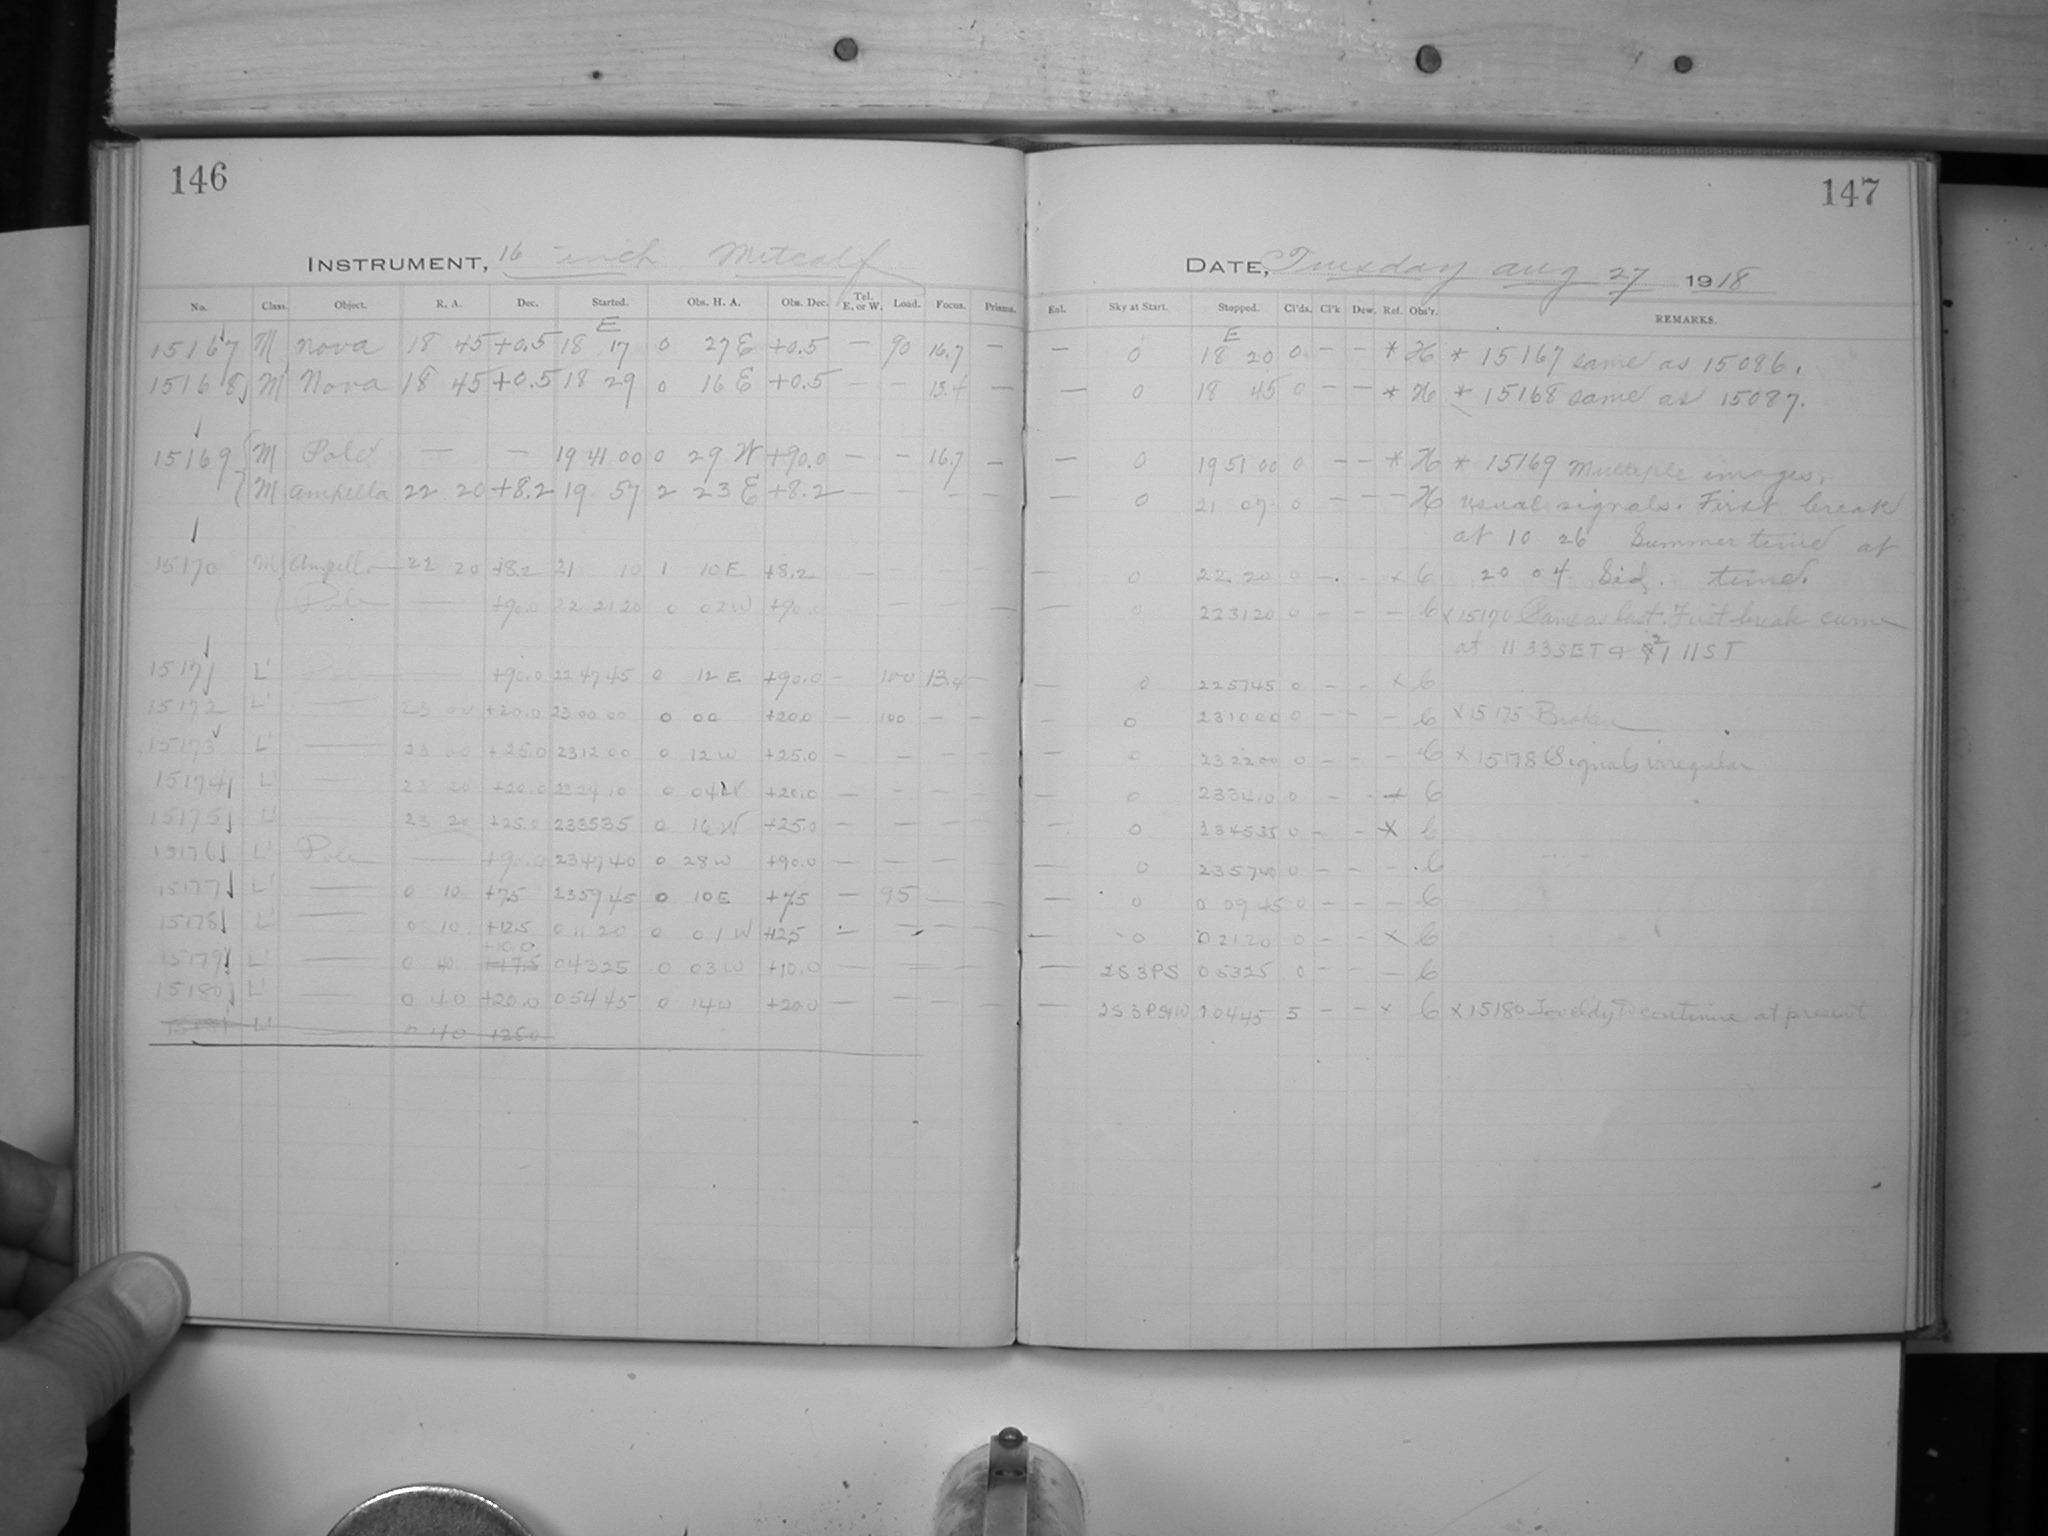 146
147
INSTRUMENT, 16 inch Metcalf
DATE, Tuesday Aug 27 1918
No. Class. Object. R. A. Dec. Started. Obs. H. A. Obs. Dec. Tel. E. or W. Load. Focus. Prisms. Eol. Sky at Start. Stopped. Cl'ds. Cl'k Dew. Ref. Obs'r. REMARKS.
E E
15167 M Nova 18 45 +0.5 18 17 0 27 E +0.5 — 90 16.7 — — 0 18 20 0 — — * H * 15167 same as 15086.
15168 M Nova 18 45 +0.5 18 29 0 16 E +0.5 — — 13.4 — — 0 18 45 0 — — * H * 15168 same as 15087.
15169 M Pole — — 19 41 00 0 29 W +90.0 — — 16.7 — — 0 19 51 00 0 — — * H * 15169 Multiple images,
M Ampella 22 20 +8.2 19 57 2 23 E +8.2 — — — — — 0 21 07 0 — — — H usual signals. First break
at 10 26 Summer time at
15170 M Ampella 22 20 +8.2 21 10 1 10 E +8.2 — — — — 0 22 20 0 — — x 6 20 04 Sid. time.
Pole — +90.0 22 21 20 0 02 W +90.0 — — — — 0 22 31 20 0 — — — 6 x 15170 Same as last. First break came
at 11 33 SET & 21 11 ST
15171 L' Pole +90.0 22 47 45 0 12 E +90.0 — 100 13.4 — — 0 22 57 45 0 — — x 6
15172 L' — 23 00 +20.0 23 00 00 0 00 +20.0 — 100 — — — 0 23 10 00 0 — — — 6 x 15175 Broken
15173 L' — 23 00 +25.0 23 12 00 0 12 W +25.0 — — — — — 0 23 22 00 0 — — — 6 x 15178 Signals irregular
15174 L' — 23 20 +20.0 23 24 10 0 04 W +20.0 — — — — — 0 23 34 10 0 — — 6
15175 L' — 23 20 +25.0 23 35 35 0 16 W +25.0 — — — — — 0 23 45 35 0 — — x 6
15176 L' Pole — +90.0 23 47 40 0 28 W +90.0 — — — — — 0 23 57 40 0 — — — 6
15177 L' — 0 10 +7.5 23 59 45 0 10 E +7.5 — 95 — — — 0 0 09 45 0 — — — 6
15178 L' — 0 10 +12.5 0 11 20 0 01 W +12.5 — — — — 0 0 21 20 0 — — x 6
+10.0
15179 L' — 0 40 +17.5 0 43 25 0 03 W +10.0 — — — — — 2S 3PS 0 53 25 0 — — — 6
15180 L' — 0 40 +20.0 0 54 45 0 14 W +20.0 — — — — — 2S 3PS 1 04 45 5 — — x 6 x 15180 Too cldy to continue at present
15181 L' 0 40 +25.0